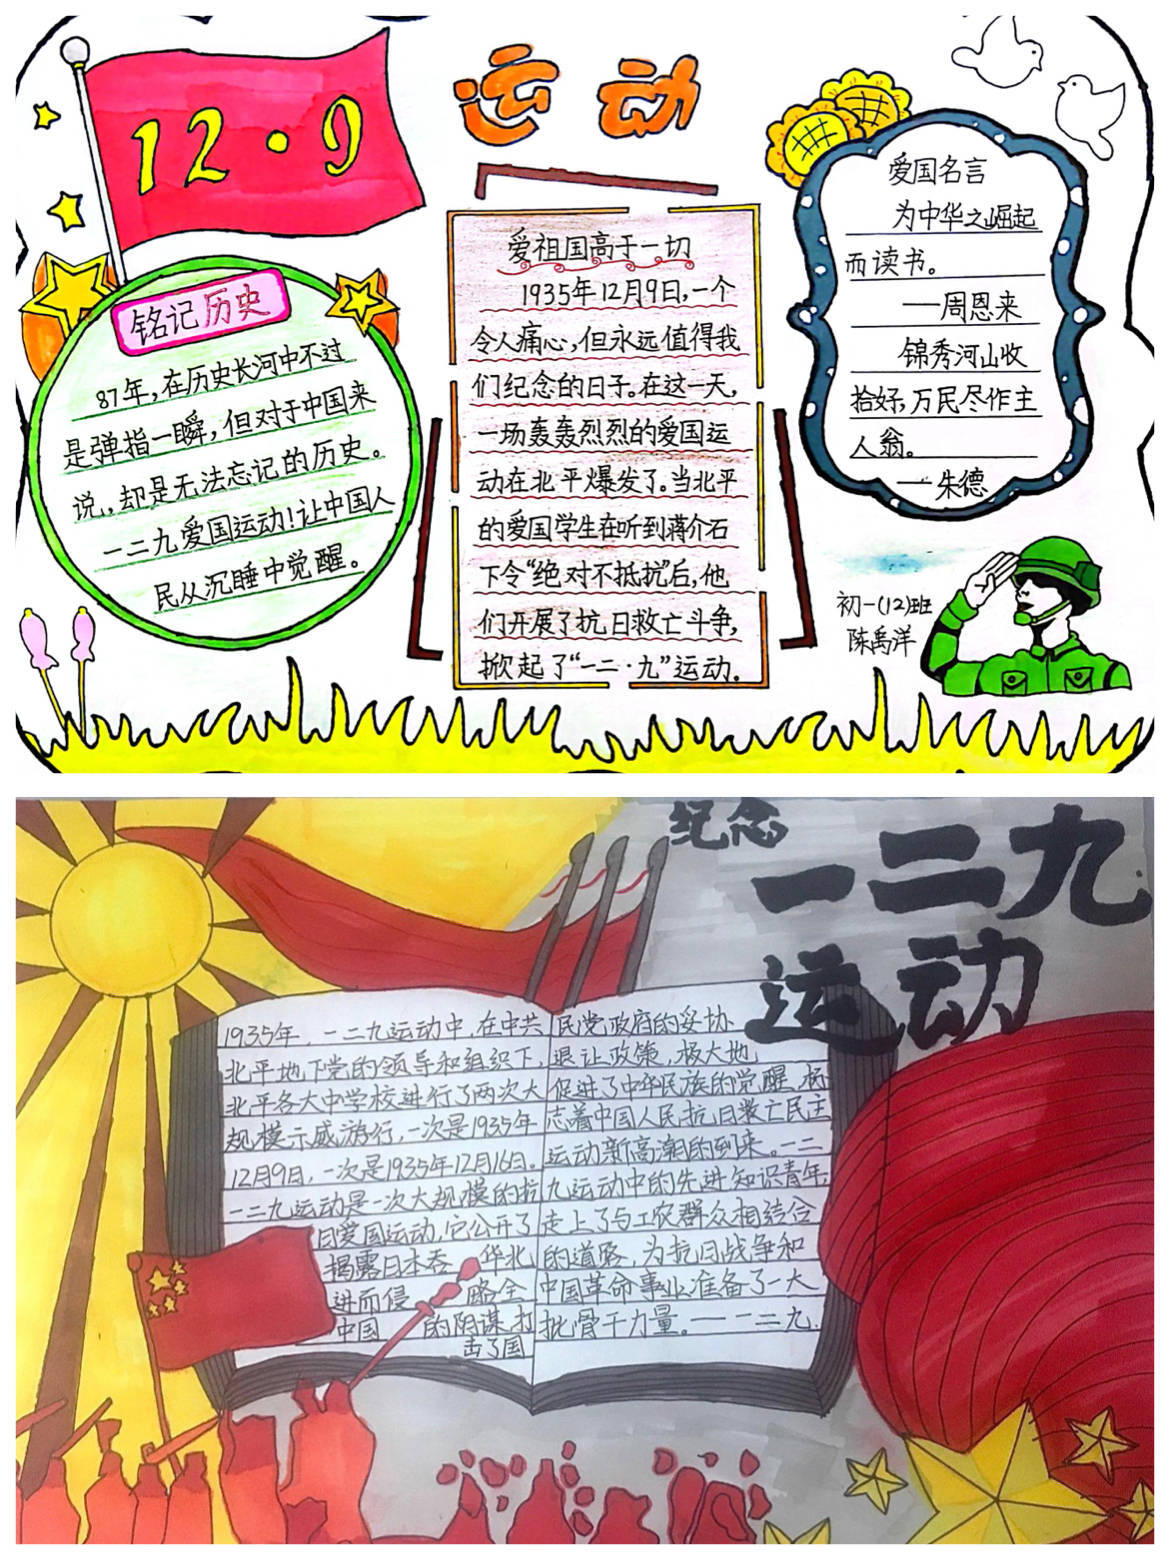 12·9
运动
铭记历史
87年,在历史长河中不过
是弹指一瞬，但对于中国来
说，,却是无法忘记的历史。
一二九爱国运动!让中国人
民从沉睡中觉醒。
爱祖国高于一切
1935年12月9日,一个
令人痛心,但永远值得我
们纪念的日子。在这一天,
一场轰轰烈烈的爱国运
动在北平爆发了。当北平
的爱国学生在听到蒋介石
下令“绝对不抵抗”后,他
们开展了抗日救亡斗争,
掀起了“一二·九”运动。
爱国名言
为中华之崛起
而读书。
——周恩来
锦秀河山收
拾好,万民尽作主
人翁。
——朱德
初一(12)班
陈禹洋
纪念
一二九
运动
1935年，一二九运动中,在中共
北平地下党的领导和组织下,
北平各大中学校进行了两次大
规模示威游行,一次是1935年
12月9日,一次是1935年12月16日。
一二九运动是一次大规模的抗
日爱国运动,它公开了
揭露日本吞 华北
进而侵 略全
中国 的阴谋,打
击了国
民党政府的妥协
退让政策,极大地
促进了中华民族的觉醒,标
志着中国人民抗日救亡民主
运动新高潮的到来。一二
九运动中的先进知识青年,
走上了与工农群众相结合
的道路,为抗日战争和
中国革命事业准备了一大
批骨干力量。——一二九.